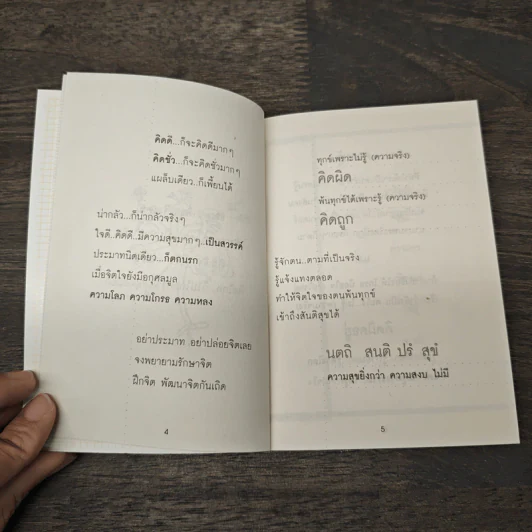 คิดดี...ก็จะคิดดีมากๆ
คิดชั่ว...ก็จะคิดชั่วมากๆ
แผล็บเดียว..ก็เพี้ยนได้
น่ากลัว...ก็น่ากลัวจริงๆ
ใจดี..คิดดี..มีความสุขมากๆ..เป็นสวรรค์
ประมาทนิดเดียว...ก็ตกนรก
เมื่อจิตใจยังมีอกุศลมูล
ความโลภ ความโกรธ ความหลง
อย่าประมาท อย่าปล่อยจิตเลย
จงพยายามรักษาจิต
ฝึกจิต พัฒนาจิตกันเถิด
4
ทุกข์เพราะไม่รู้ (ความจริง)
คิดผิด
พ้นทุกข์ได้เพราะรู้ (ความจริง)
คิดถูก
รู้จักตน..ตามที่เป็นจริง
รู้แจ้งแทงตลอด
ทำให้จิตใจของตนพ้นทุกข์
เข้าถึงสันติสุขได้
นตถิ สนติ ปรํ สุขํ
ความสุขยิ่งกว่า ความสงบ ไม่มี
5